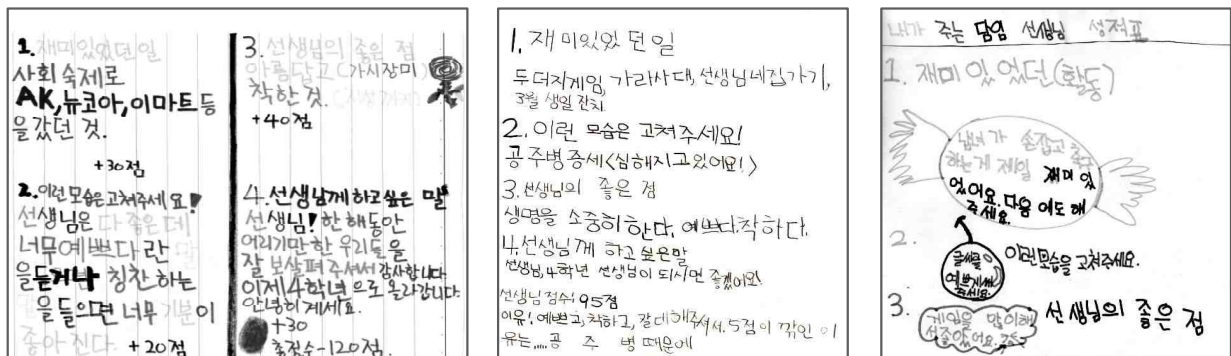 1. 재미있었던 일
사회 숙제로
AK, 뉴코아, 이마트 등
을 갔던 것.
+30점
2. 이런 모습은 고쳐주세요!
선생님은 다 좋은데
너무 예쁘다란
을 듣거나 칭찬 하는
을 들으면 너무 기분이
좋아진다. +20점
3. 선생님의 좋은 점
아름답고(가시장미)
착한 것.
+40점
4. 선생님께 하고 싶은 말
선생님! 한 해동안
어리기만 한 우리들을
잘 보살펴 주셔서 감사합니다.
이제 4학년으로 올라갑니다.
안녕히 계세요.
+30
총점수-120점.
1. 재미있었던 일
두더지게임, 가라사대, 선생님네집가기,
3월 생일 잔치
2. 이런 모습은 고쳐주세요!
공주병 증세<심해지고있어요!>
3. 선생님의 좋은 점
생명을 소중히한다, 예쁘다, 착하다.
4. 선생님께 하고싶은말
선생님, 4학년 선생님이 되시면 좋겠어요!
선생님 점수! 95점
이유! 예쁘고, 착하고, 잘 대해주셔서, 5점이 깎인 이
유는,,,, 공 주 병 때문에
내가 주는 담임 선생님 성적표
1. 재미있었던(활동)
남녀가 손잡고
하는게 제일 재미있
었어요. 다음에도 해
주세요.
2. 이런모습을 고쳐주세요.
글씨를
예쁘게써
주세요.
3. 선생님의 좋은 점
게임을 많이해
서좋았어요.